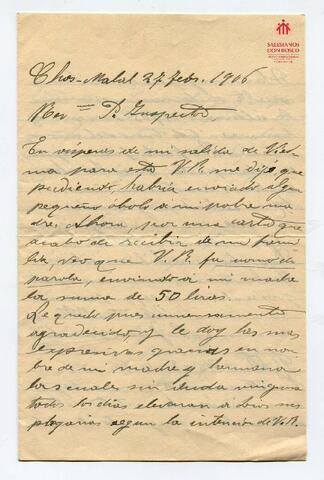 SALESIANOS
DON BOSCO
Chos-Malal 27 febr. 1906
Rev.mo P. Inspector
En vísperas de mi salida de Vied-
ma para esta V. R. me dijo que
pudiendo, habría enviado algun
pequeño óbolo a mi pobre ma
dre. Ahora, por una carta que
acabo de recibir de mi fami
lia veo que V. R. fu uomo di
parola, enviando a mi madre
la suma de 50 liras.
Le quedo pues inmensamente
agradecido, y le doy las mas
expresivas gracias en nom
bre de mi madre y hermana
las cuales sin duda ninguna
todos los días elevaran a Dios sus
plegarias segun la intención de V. R.